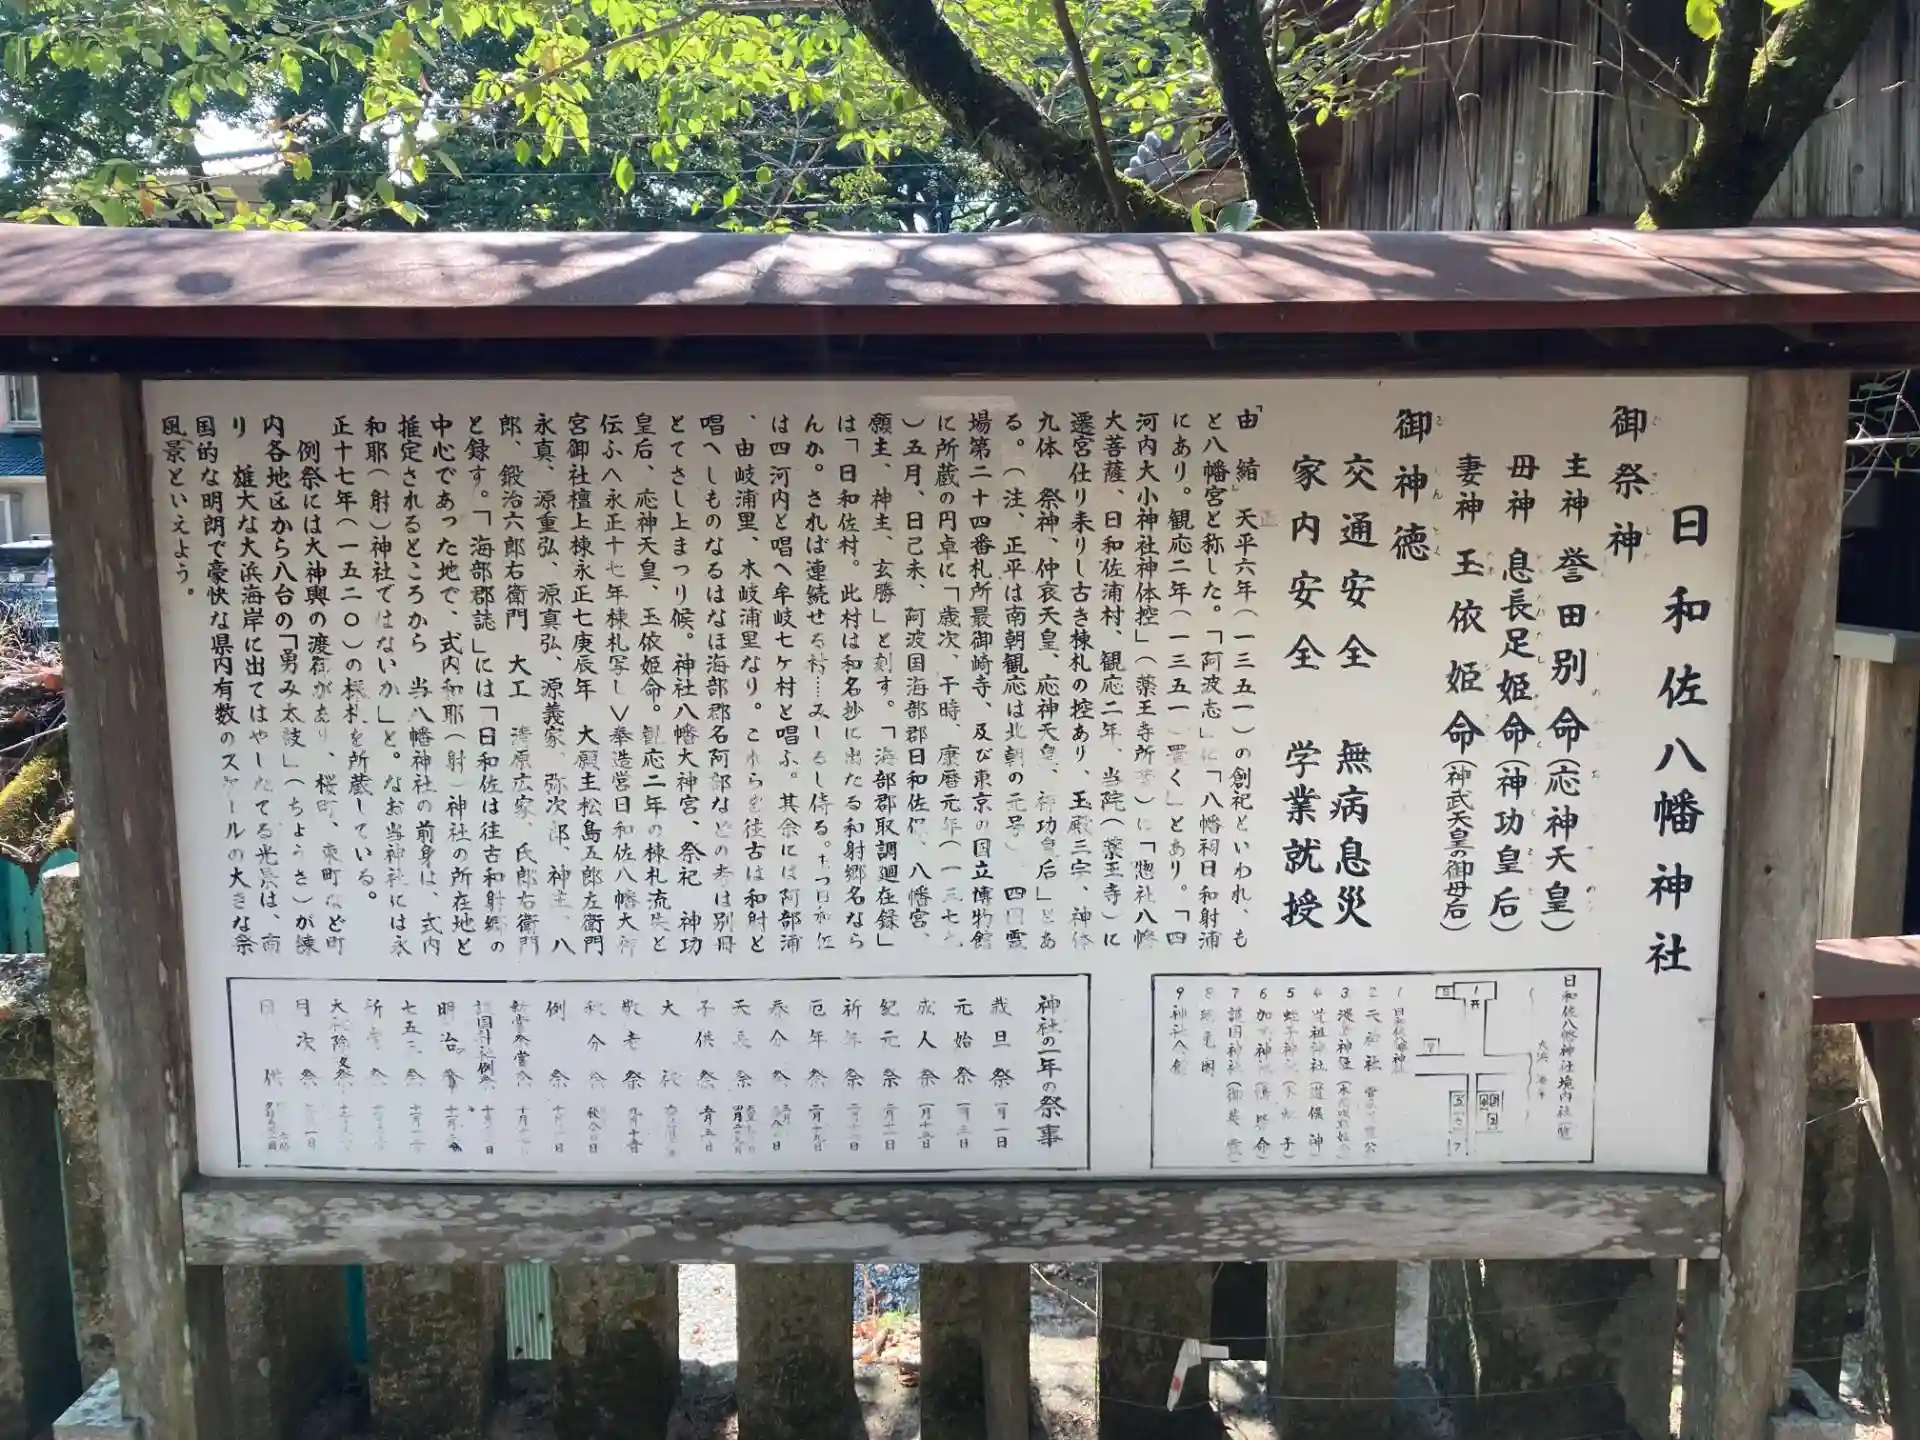 日和佐八幡神社
御祭神
主神 誉田別命(応神天皇)
母神 息長足姫命(神功皇后)
妻神 玉依姫命(神武天皇の御母后)
御神徳
交通安全 無病息災
家内安全 学業就授
「由 緒」天平六年(一三五一)の創祀といわれ、も
と八幡宮と称した。「阿波志」に「八幡祠日和射浦
にあり。観応二年(一三五一)置く」とあり。「四
河内大小神社神体控」(薬王寺所蔵)に「惣社八幡
大菩薩、日和佐浦村、観応二年、当院(薬王寺)に
遷宮仕り来りし古き棟札の控あり、玉殿三宇、神体
九体 祭神、仲哀天皇、応神天皇、神功皇后」とあ
る。(注、正平は南朝観応は北朝の元号) 四国霊
場第二十四番札所最御崎寺、及び東京の国立博物館
に所蔵の円卓に「歳次、干時、康暦元年(一三七九
)五月、日己未、阿波国海部郡日和佐保、八幡宮、
願主、神主、玄勝」と刻す。「海部郡取調廻在録」
は「日和佐村。此村は和名抄に出たる和射郷名なら
んか。されば連続せる村…みしるし侍る。
は四河内と唱へ牟岐七ケ村と唱ふ。其余には阿部浦
、由岐浦里、木岐浦里なり。これらを往古は和射と
唱へしものなるはなほ海部郡名阿部などの考は別冊
とてさし上まつり候。神社八幡大神宮、祭祀 神功
皇后、応神天皇、玉依姫命。観応二年の棟札流失と
伝ふ<永正十七年棟札写し>奉造営日和佐八幡大神
宮御社檀上棟永正十七庚辰年 大願主松島五郎左衛門
永真、源重弘、源真弘、源義家、弥次郎、神主、八
郎、鍛治六郎右衛門 大工 清原広家、氏郎右衛門
と録す。「海部郡誌」には「日和佐は往古和射郷の
中心であった地で、式内和耶(射)神社の所在地と
推定されるところから 当八幡神社の前身は、式内
和耶(射)神社ではないか」と。なお当神社には永
正十七年(一五二〇)の棟札を所蔵している。
例祭には大神輿の渡御があり、桜町、東町など町
内各地区から八台の「勇み太鼓」(ちょうさ)が練
り 雄大な大浜海岸に出てはやしたてる光景は、南
国的な明朗で豪快な県内有数のスケールの大きな祭
風景といえよう。
日和佐八幡神社境内社一覧
大浜
1 日和佐八幡神社
7 護国神社(御英霊)
9 神社会館
神社の一年の祭事
歳旦祭 一月一日
元始祭 一月三日
成人祭 一月十五日
紀元祭 二月十一日
祈年祭
厄年祭
春分祭
天長祭
子供祭 五月五日
大祓
敬老祭 九月十五日
秋分祭 秋分の日
例祭
新嘗祭
護国神社例祭
明治祭
七五三祭
月次祭